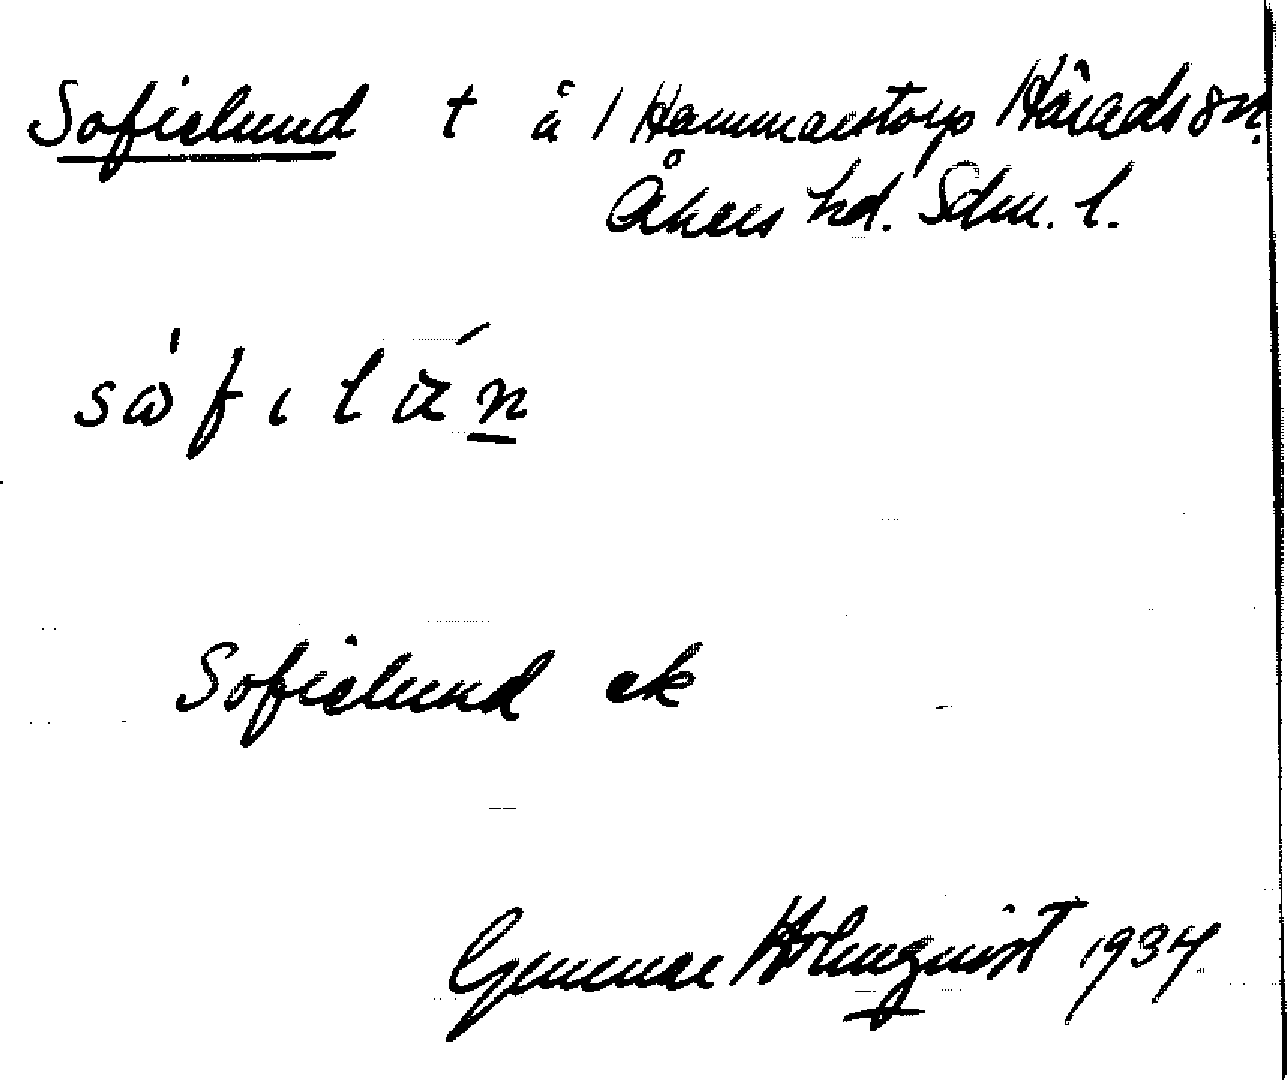 Sofielund t å 1 Hammarstorp Härads sn.
Åkers hd. Sdm. l.
Sofielund ek
Gunnar Holmquist 1934